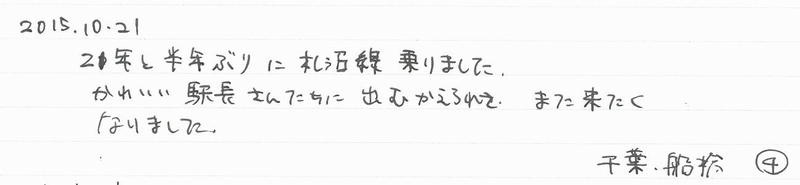 2015.10.21
21年と半年ぶりに札沼線乗りました.
かわいい駅長さんたちに出むかえられて. また来たく
なりました.
千葉.船橋 ④